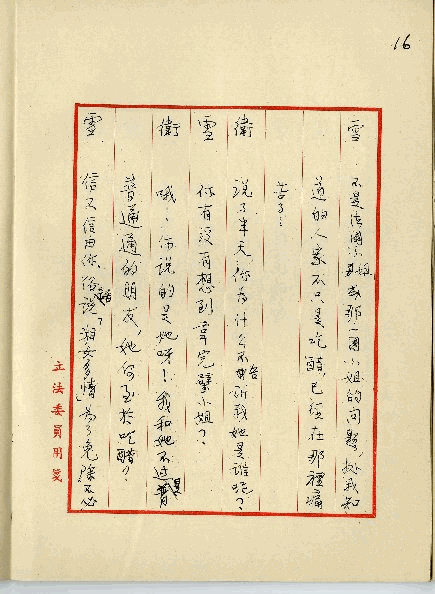 16
雪 不是法國小姐或那一國小姐的問題,據我知
道的人家不只是吃醋,已經在那裡痛
苦了…
衛 說了半天,你為什麼不告訴我她是誰呢?
雪 你有沒有想到韋完璧小姐?
衛 哦,你說的是她呀!我和她不過是
普通通的朋友,她何至於吃醋?
雪 信不信由你,俗語說「淑女多情」為了免除不必
立法委員用箋